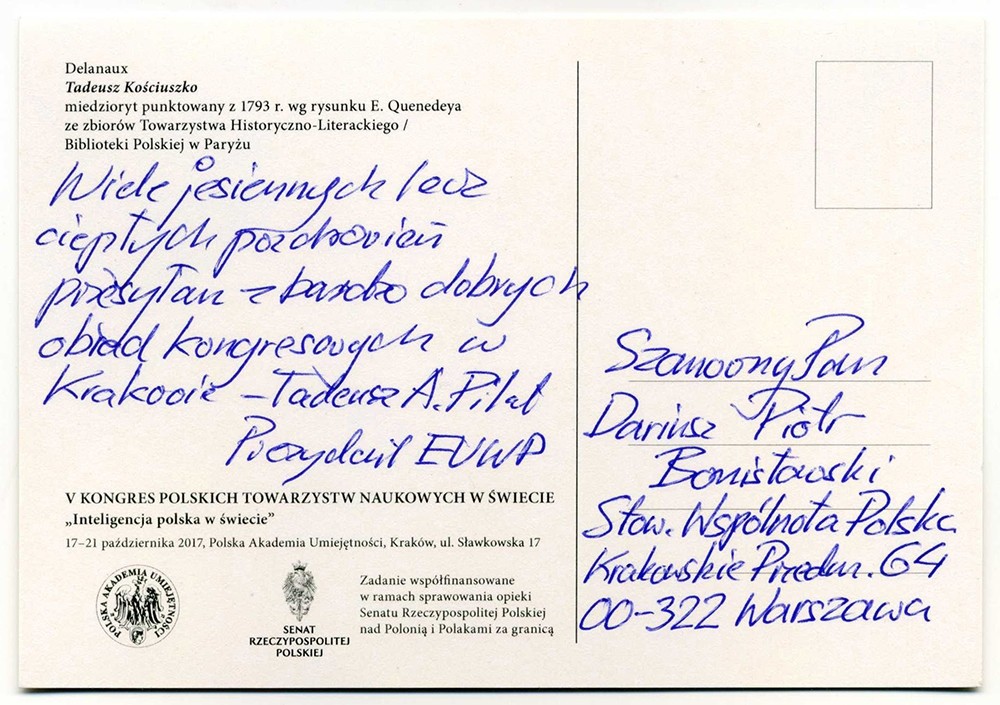 Delanaux
Tadeusz Kościuszko
miedzioryt punktowany z 1793 r. wg rysunku E. Quenedeya
ze zbiorów Towarzystwa Historyczno-Literackiego /
Biblioteki Polskiej w Paryżu
Wiele jesiennych lecz
ciepłych pozdrowień
przesyłam z bardzo dobrych
obrad kongresowych w
Krakowie – Tadeusz A. Pilat
Prezydent EUWP
V KONGRES POLSKICH TOWARZYSTW NAUKOWYCH W ŚWIECIE
„Inteligencja polska w świecie”
17–21 października 2017, Polska Akademia Umiejętności, Kraków, ul. Sławkowska 17
POLSKA AKADEMIA UMIEJĘTNOŚCI
SENAT
RZECZYPOSPOLITEJ
POLSKIEJ
Zadanie współfinansowane
w ramach sprawowania opieki
Senatu Rzeczypospolitej Polskiej
nad Polonią i Polakami za granicą
Szanowny Pan
Dariusz Piotr
Bonisławski
Stow. Wspólnota Polska
Krakowskie Przedm. 64
00-322 Warszawa